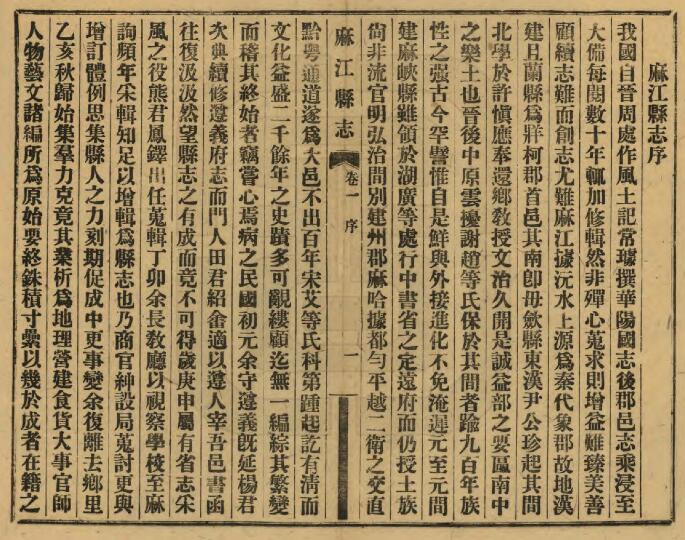 麻江縣志序
我國自晉周處作風土記常璩撰華陽國志後郡邑志乘浸至
大備每閱數十年輒加修輯然非殫心蒐求則增益難臻美善
顧續志難而創志尤難麻江據沅水上源爲秦代象郡故地漢
建且蘭縣爲牂柯郡首邑其南卽毋斂縣東漢尹公珍起其間
北學於許愼應奉還鄉教授文治久開是誠益部之要區南中
之樂土也晉後中原雲擾謝趙等氏保於其間者踰九百年族
性之强古今罕譬惟自是鮮與外接進化不免淹遲元至元間
建麻峽縣雖領於湖廣等處行中書省之定遠府而仍授土族
尙非流官明弘治間別建州郡麻哈據都勻平越二衛之交直
麻江縣志
卷一 序
一
黔粤通道遂爲大邑不出百年宋艾等氏科第踵起訖有淸而
文化益盛二千餘年之史蹟多可觀縷顧迄無一編綜其繁變
而稽其終始者竊嘗心焉病之民國初元余守遵義旣延楊君
次典續修遵義府志而門人田君紹畬適以遵人宰吾邑書函
往復汲汲然望縣志之有成而竟不可得歲庚申屬有省志采
風之役熊君鳳鐸出任蒐輯丁卯余長敎廳以視察學校至麻
詢頻年采輯知足以增輯爲縣志也乃商官紳設局蒐討更與
增訂體例思集縣人之力刻期促成中更事變余復離去鄉里
乙亥秋歸始集羣力克竟其業析爲地理營建食貨大事官師
人物藝文諸編所爲原始要終銖積寸絫以幾於成者在籍之